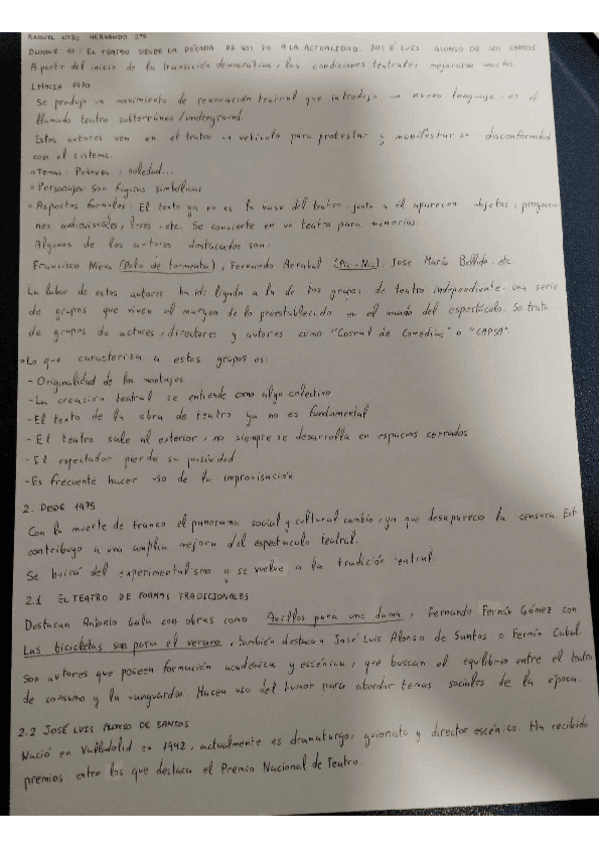 RAQUEL LOBO HERNANDO 2ºA
BLOQUE 10: EL TEATRO DESDE LA DÉCADA DE LOS 70 A LA ACTUALIDAD. JOSÉ LUIS ALONSO DE LOS SANTOS
A partir del inicio de la transición democrática, las condiciones teatrales mejoraron mucho
1. HACIA 1970
Se produjo un movimiento de renovación teatral que introdujo un nuevo lenguaje. es el
llamado teatro subterráneo/underground.
Estos autores ven en el teatro un vehículo para protestar y manifestar su disconformidad
con el sistema.
Temas: Pobreza, soledad...
Personajes: Son figuras simbólicas
Aspectos formales: El texto ya no es la base del teatro, junto a él aparecen objetos, proyeccio-
nes audiovisuales, luces, etc. Se convierte en un teatro para minorías.
Algunos de los autores destacados son:
Francisco Nieva (Pelo de tormenta), Fernando Arrabal (Pic-Nic), Jose María Bellido, etc
La labor de estos autores ha ido ligada a la de los grupos de teatro independiente. una serie
de grupos que viven al margen de lo preestablecido en el mundo del espectáculo. Se trata
de grupos de actores, directores y autores como "Corral de Comedias" o "CAPSA".
Lo que caracteriza a estos grupos es:
- Originalidad de los montajes
- La creación teatral se entiende como algo colectivo
- El texto de la obra de teatro ya no es fundamental
- El teatro sale al exterior, no siempre se desarrolla en espacios cerrados
- El espectador pierde su pasividad
- Es frecuente hacer uso de la improvisación
2. DESDE 1975
Con la muerte de Franco el panorama social y cultural cambio, ya que desaparecio la censura. Esto
contribuyo a una amplia mejora del espectaculo teatral.
Se huirá del experimentalismo y se vuelve a la tradición teatral.
2.1 EL TEATRO DE FORMAS TRADICIONALES
Destacan Antonio Gala con obras como Anillos para una dama, Fernando Fernán Gómez con
Las bicicletas son para el verano, también destacan José Luis Alonso de Santos o Fermín Cabal.
Son autores que poseen formación académica y escénica, que buscan el equilibrio entre el teatro
de consumo y la vanguardia. Hacen uso del humor para abordar temas sociales de la época.
2.2 JOSÉ LUIS ALONSO DE SANTOS
Nació en Valladolid en 1942, actualmente es dramaturgo, guionista y director escénico. Ha recibido
premios entre los que destaca el Premio Nacional de Teatro.